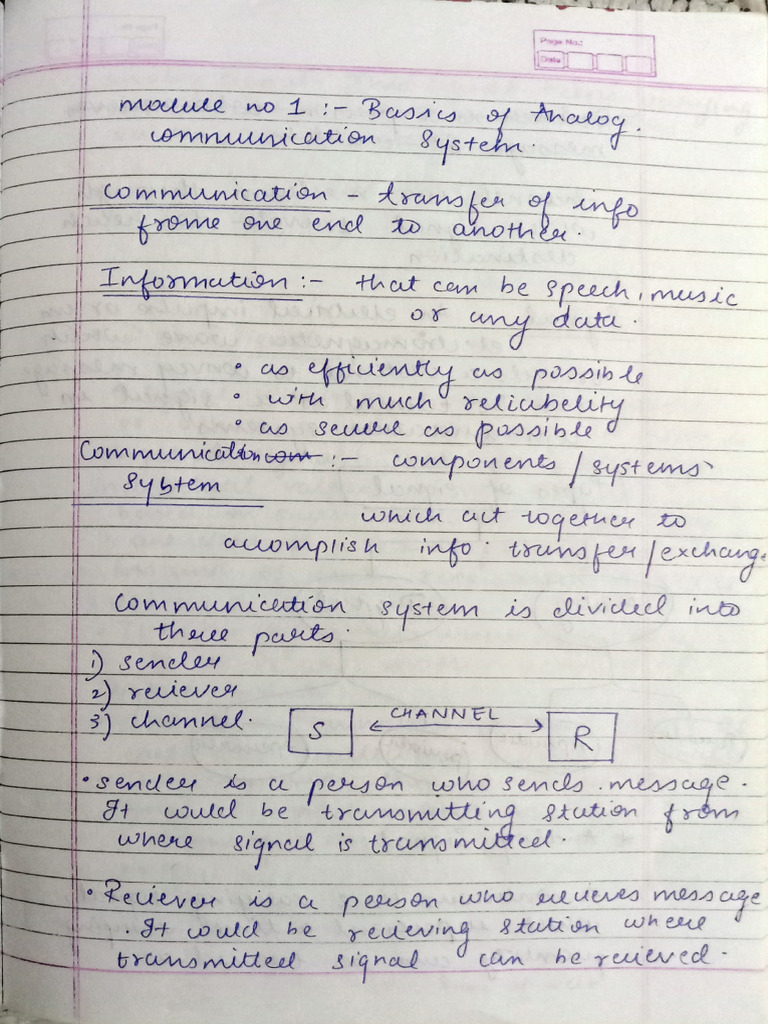 Page No.:
Date
module no 1 :- Basics of Analog.
communication system.
communication - transfer of info
frome one end to another.
Information :- that can be speech, music
or any data.
• as efficiently as possible
• with much reliability
• as secure as possible
Communication com :- components / systems
System
which act together to
accomplish info. transfer/exchange
Communication system is divided into
three parts.
1) sender
2) reciever
3) channel.
S CHANNEL R
• sender is a person who sends message.
It would be transmitting station from
where signal is transmitted.
• Reciever is a person who recieves message
. It would be recieving station where
transmitted signal can be recieved.